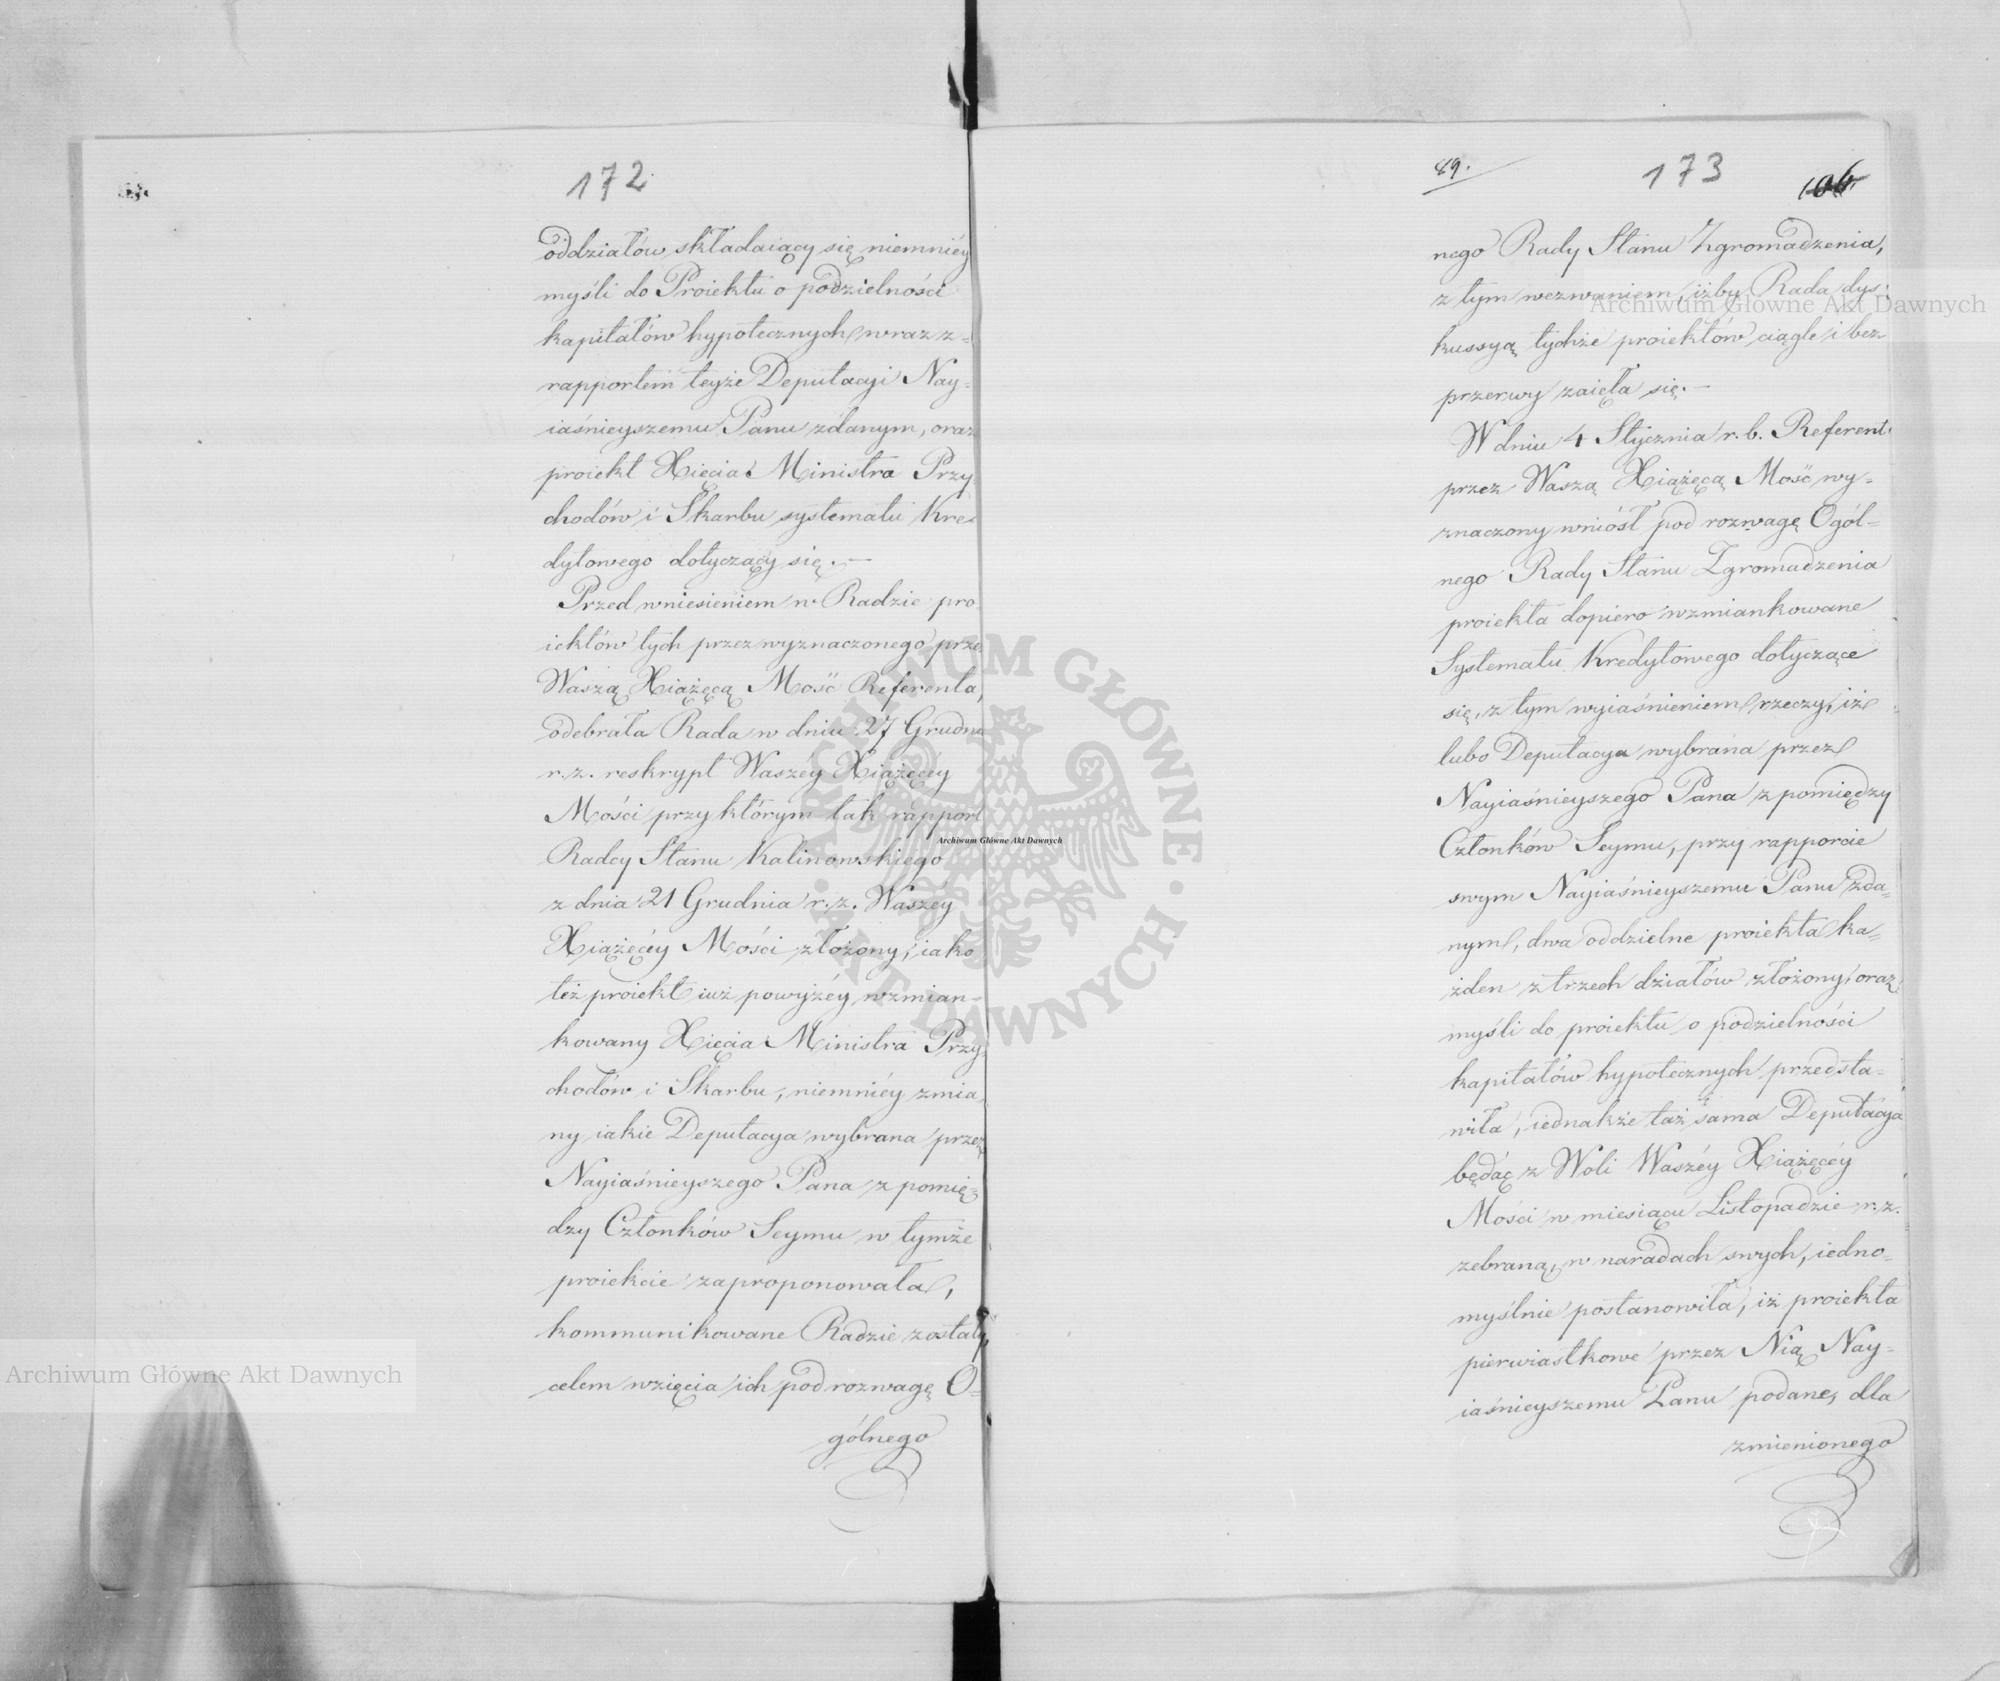 172
oddziałów składaiący się niemniéy
myśli do Proiektu o podzielności
kapitałów hypotecznych wraz z
rapportem teyże Deputacyi Nay-
iaśnieyszemu Panu zdanym, oraz
proiekt Xięcia Ministra Przy
chodów i Skarbu systematu Kre-
dytowego dotyczący się. —
Przed wniesieniem w Radzie pro
iektów tych przez wyznaczonego przez
Waszą Xiążęcą Mość Referenta,
odebrała Rada w dniu 27 Grudnia
r. z. reskrypt Waszéy Xiążęcéy
Mości przy którym tak rapport
Radcy Stanu Kalinowskiego
z dnia 21 Grudnia r. z. Waszéy
Xiążęcéy Mości złożony, iako
też proiekt iuż powyżéy wzmian-
kowany Xięcia Ministra Przy
chodów i Skarbu, niemniéy zmia-
ny iakie Deputacya wybrana przez
Nayiaśnieyszego Pana z pomię-
dzy Członków Seymu w tymże
proiekcie zaproponowała,
kommunikowane Radzie zostały,
celem wzięcia ich pod rozwagę O-
gólnego
89.
173
106.
nego Rady Stanu Zgromadzenia,
z tym wezwaniem, iżby Rada dys-
kussyą tychże proiektów ciągle i bez
przerwy zaięła się. —
W dniu 4 Stycznia r. b. Referent
przez Waszą Xiążęcą Mość wy-
znaczony wniósł pod rozwagę Ogól-
nego Rady Stanu Zgromadzenia
proiekta dopiero wzmiankowane
Systematu Kredytowego dotyczące
się, z tym wyiaśnieniem rzeczy, iż
lubo Deputacya wybrana przez
Nayiaśnieyszego Pana z pomiędzy
Członków Seymu, przy rapporcie
swym Nayiaśnieyszemu Panu zda-
nym, dwa oddzielne proiekta ka-
żden z trzech działów złożony, oraz
myśli do proiektu o podzielności
kapitałów hypotecznych przedsta-
wiła, iednakże taż sama Deputacya
będąc z Woli Waszéy Xiążęcéy
Mości w miesiącu Listopadzie r. z.
zebraną, w naradach swych, iedno-
myślnie postanowiła, iż proiekta
pierwiastkowe przez Nią Nay-
iaśnieyszemu Panu podane, dla
zmienionego
Archiwum Główne Akt Dawnych
Archiwum Główne Akt Dawnych
Archiwum Główne Akt Dawnych
ARCHIWUM GŁÓWNE AKT DAWNYCH